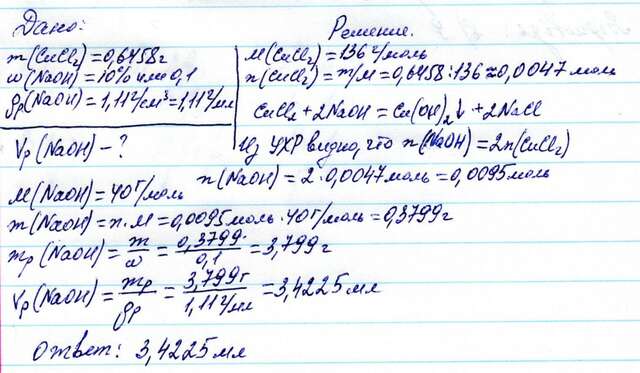 Дано:
Решение.
m(CuCl₂)=0,6458г
ω(NaOH)=10% или 0,1
ρр(NaOH)=1,11г/см³=1,11г/мл
Vр(NaOH)-?
M(CuCl₂)=136г/моль
n(CuCl₂)=m/M=0,6458:136≈0,0047моль
CuCl₂+2NaOH=Cu(OH)₂↓+2NaCl
Из УХР видно, что n(NaOH)=2n(CuCl₂)
M(NaOH)=40г/моль
n(NaOH)=2·0,0047моль=0,0095моль
m(NaOH)=n·M=0,0095моль·40г/моль=0,3799г
mр(NaOH)=m/ω=0,3799/0,1=3,799г
Vр(NaOH)=mр/ρр=3,799г/1,11г/мл=3,4225мл
Ответ: 3,4225мл